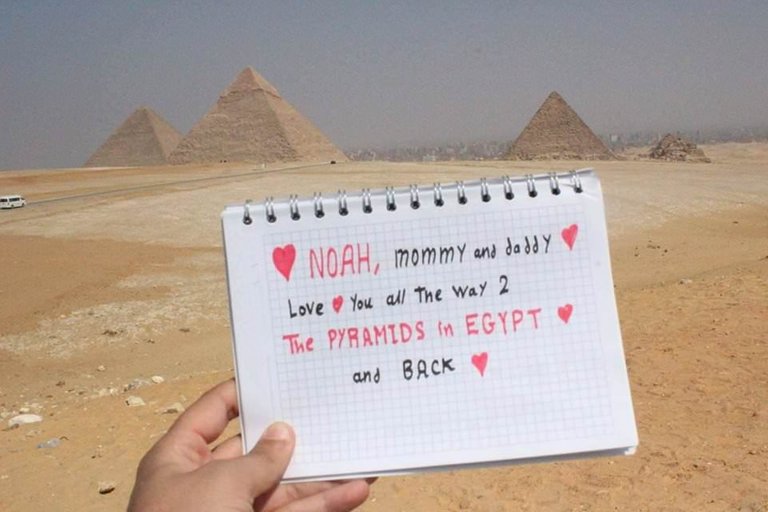 ♥ NOAH, mommy and daddy ♥
Love ♥ You all The way 2
The PYRAMIDS in EGYPT ♥
and BACK ♥